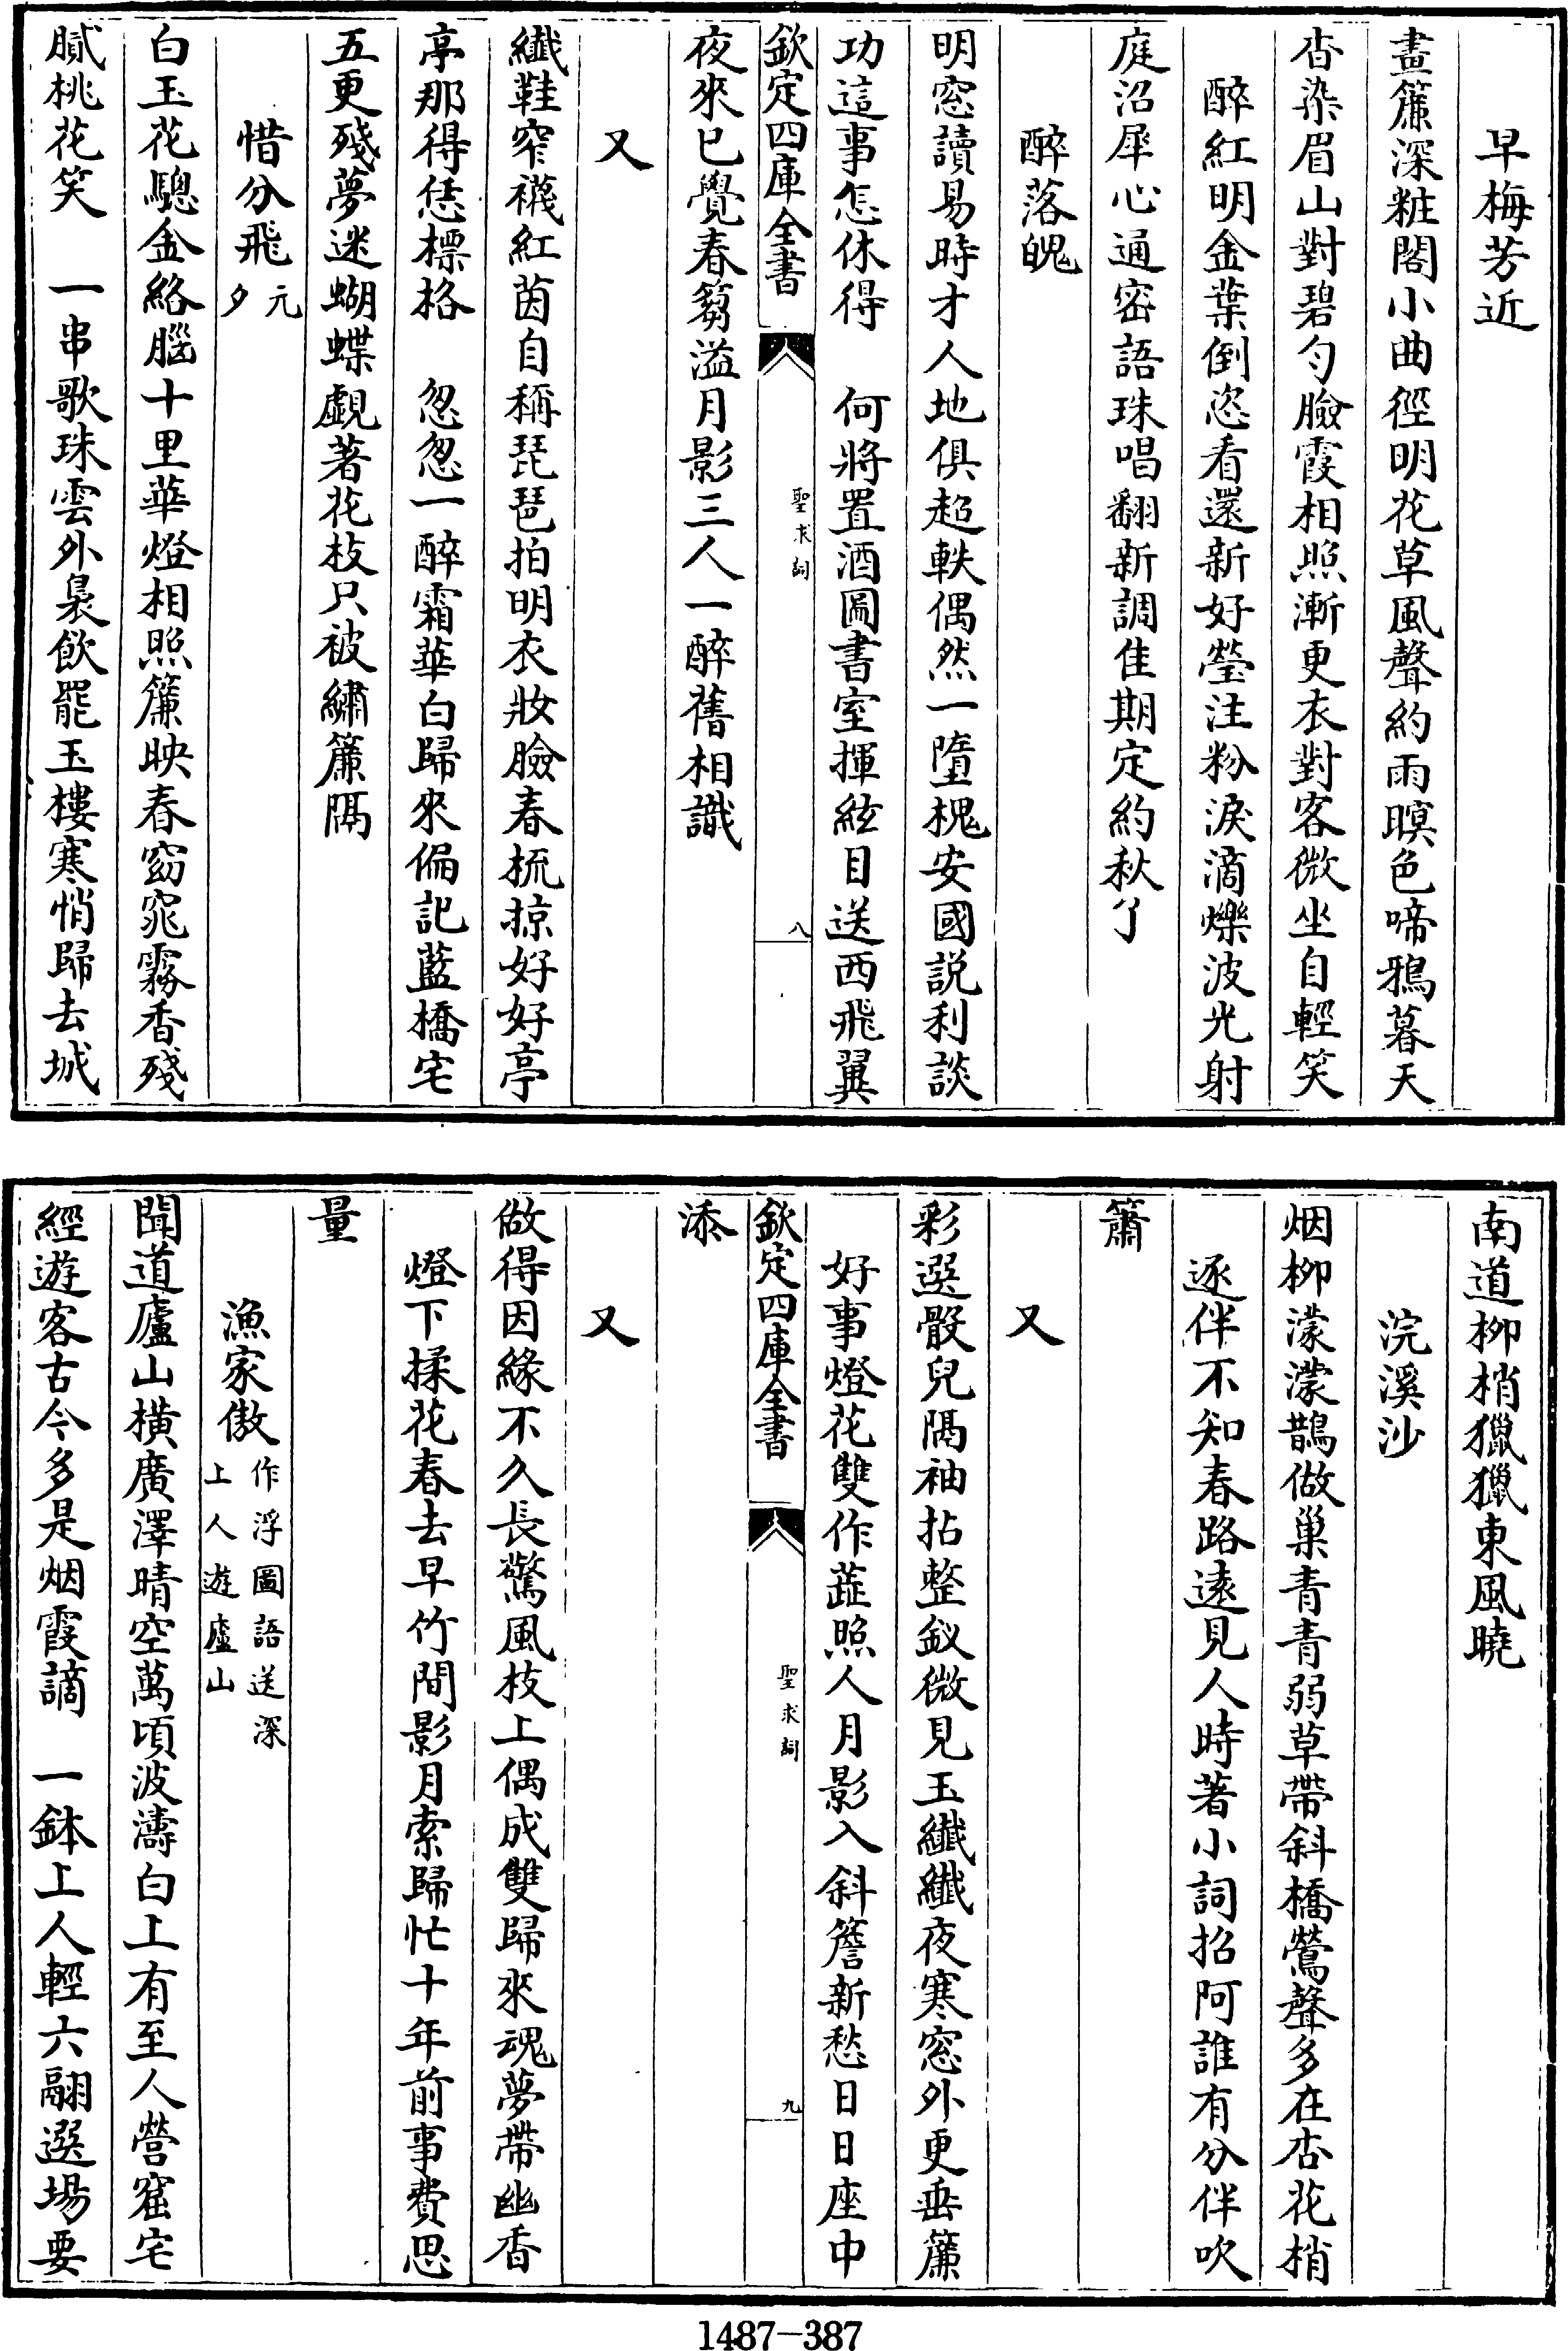 早梅芳近
畫簾深粧閣小曲徑明花草風聲約雨暝色啼鴉暮天
杳染眉山對碧勻臉霞相照漸更衣對客微坐自輕笑
醉紅明金葉倒恣看還新好瑩注粉淚滴爍波光射
庭沼犀心通密語珠唱翻新調佳期定約秋了
醉落魄
明窓讀易時才人地俱超軼偶然一墮槐安國説利談
功這事怎休得　何將置酒圖書室揮絃目送西飛翼
欽定四庫全書
聖求詞
八
夜來已覺春篘溢月影三人一醉舊相識
又
纖鞋窄襪紅茵自稱琵琶拍明衣妝臉春梳掠好好亭
亭那得恁標格　忽忽一醉霜華白歸來偏記藍橋宅
五更殘夢迷蝴蝶覷著花枝只被繡簾隔
惜分飛元夕
白玉花驄金絡腦十里華燈相照簾映春窈窕霧香殘
膩桃花笑　一串歌珠雲外裊飲罷玉樓寒悄歸去城
南道柳梢獵獵東風曉
浣溪沙
烟柳濛濛鵲做巢青青弱草帶斜橋鶯聲多在杏花梢
逐伴不知春路遠見人時著小詞招阿誰有分伴吹
簫
又
彩選骰兒隔袖拈整釵微見玉纖纖夜寒窓外更垂簾
好事燈花雙作蕋照人月影入斜簷新愁日日座中
欽定四庫全書
聖求詞
九
添
又
做得因緣不久長驚風枝上偶成雙歸來魂夢帶幽香
燈下揉花春去早竹間影月索歸忙十年前事費思
量
漁家傲作浮圖語送深上人遊廬山
聞道廬山横廣澤晴空萬頃波濤白上有至人營窟宅
經遊客古今多是烟霞謫　一鉢上人輕六翮選場要
1487—387